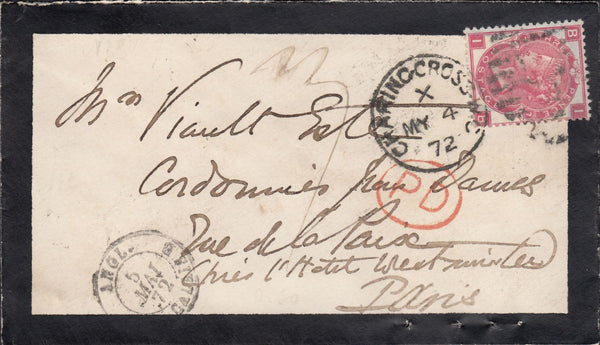 CHARING·CROSS·W.C
X
MY 4
72
PD
Mr Viault Esté
Cordonnier pour Dames
Rue de la Paix
près l'Hotel Westminster
Paris
ANGL.
5
MAI
72
CAL
B I
I B